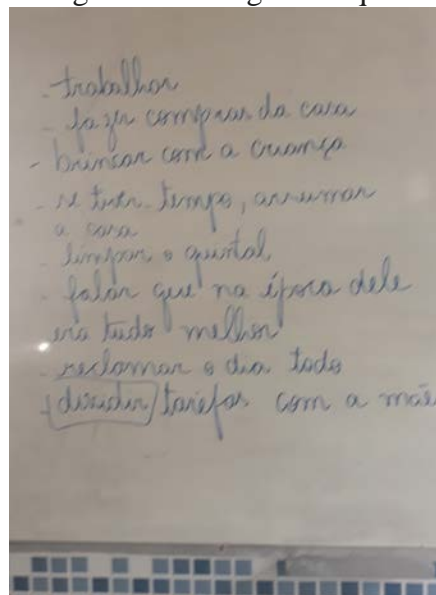 - trabalhar
- fazer compras da casa
- brincar com a criança
- se tiver tempo, arrumar
a casa
- limpar o quintal
- falar que na época dele
era tudo melhor
- reclamar o dia todo
- dividir tarefas com a mãe